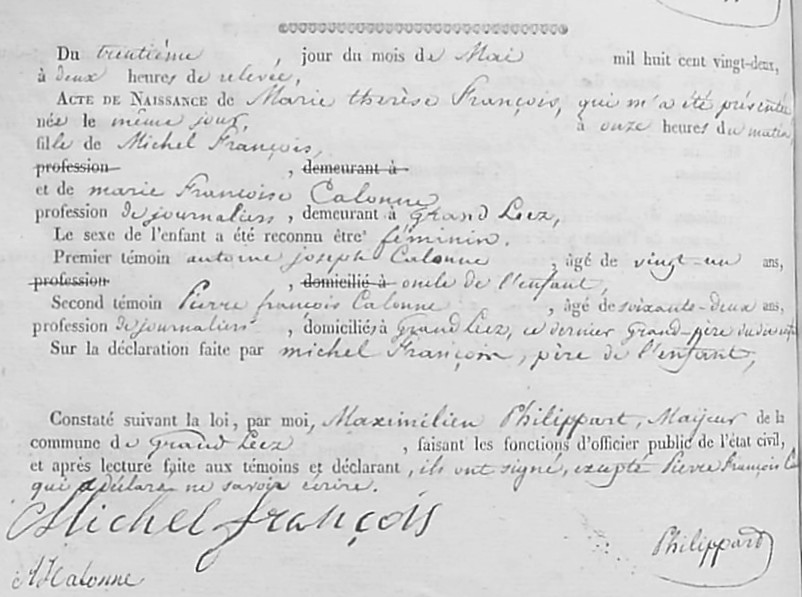 Du trentième, jour du mois de Mai mil huit cent vingt-deux,
à deux heures de relevée,
ACTE DE NAISSANCE de Marie therèse François, qui m'a été présentée
née le même jour, à onze heures du matin,
fille de Michel François,
profession , demeurant à
et de marie Françoise Calonne
profession de journaliers, demeurant à grand Leez,
Le sexe de l'enfant a été reconnu être féminin.
Premier témoin antoine joseph Calonne , âgé de vingt-un ans,
profession , domicilié à oncle de l'enfant,
Second témoin Pierre françois Calonne , âgé de soixante-deux ans,
profession de journaliers , domiciliés à Grand Leez, ce dernier Grand-père du dit enfant
Sur la déclaration faite par michel François, père de l'enfant,
Constaté suivant la loi, par moi, Maximilien Philippart, Maïeur de la
commune de grand Leez , faisant les fonctions d'officier public de l'état civil,
et après lecture faite aux témoins et déclarant, ils ont signé, excepté Pierre François
qui a déclaré ne savoir écrire.
Michel françois
Philippart
A J Calonne